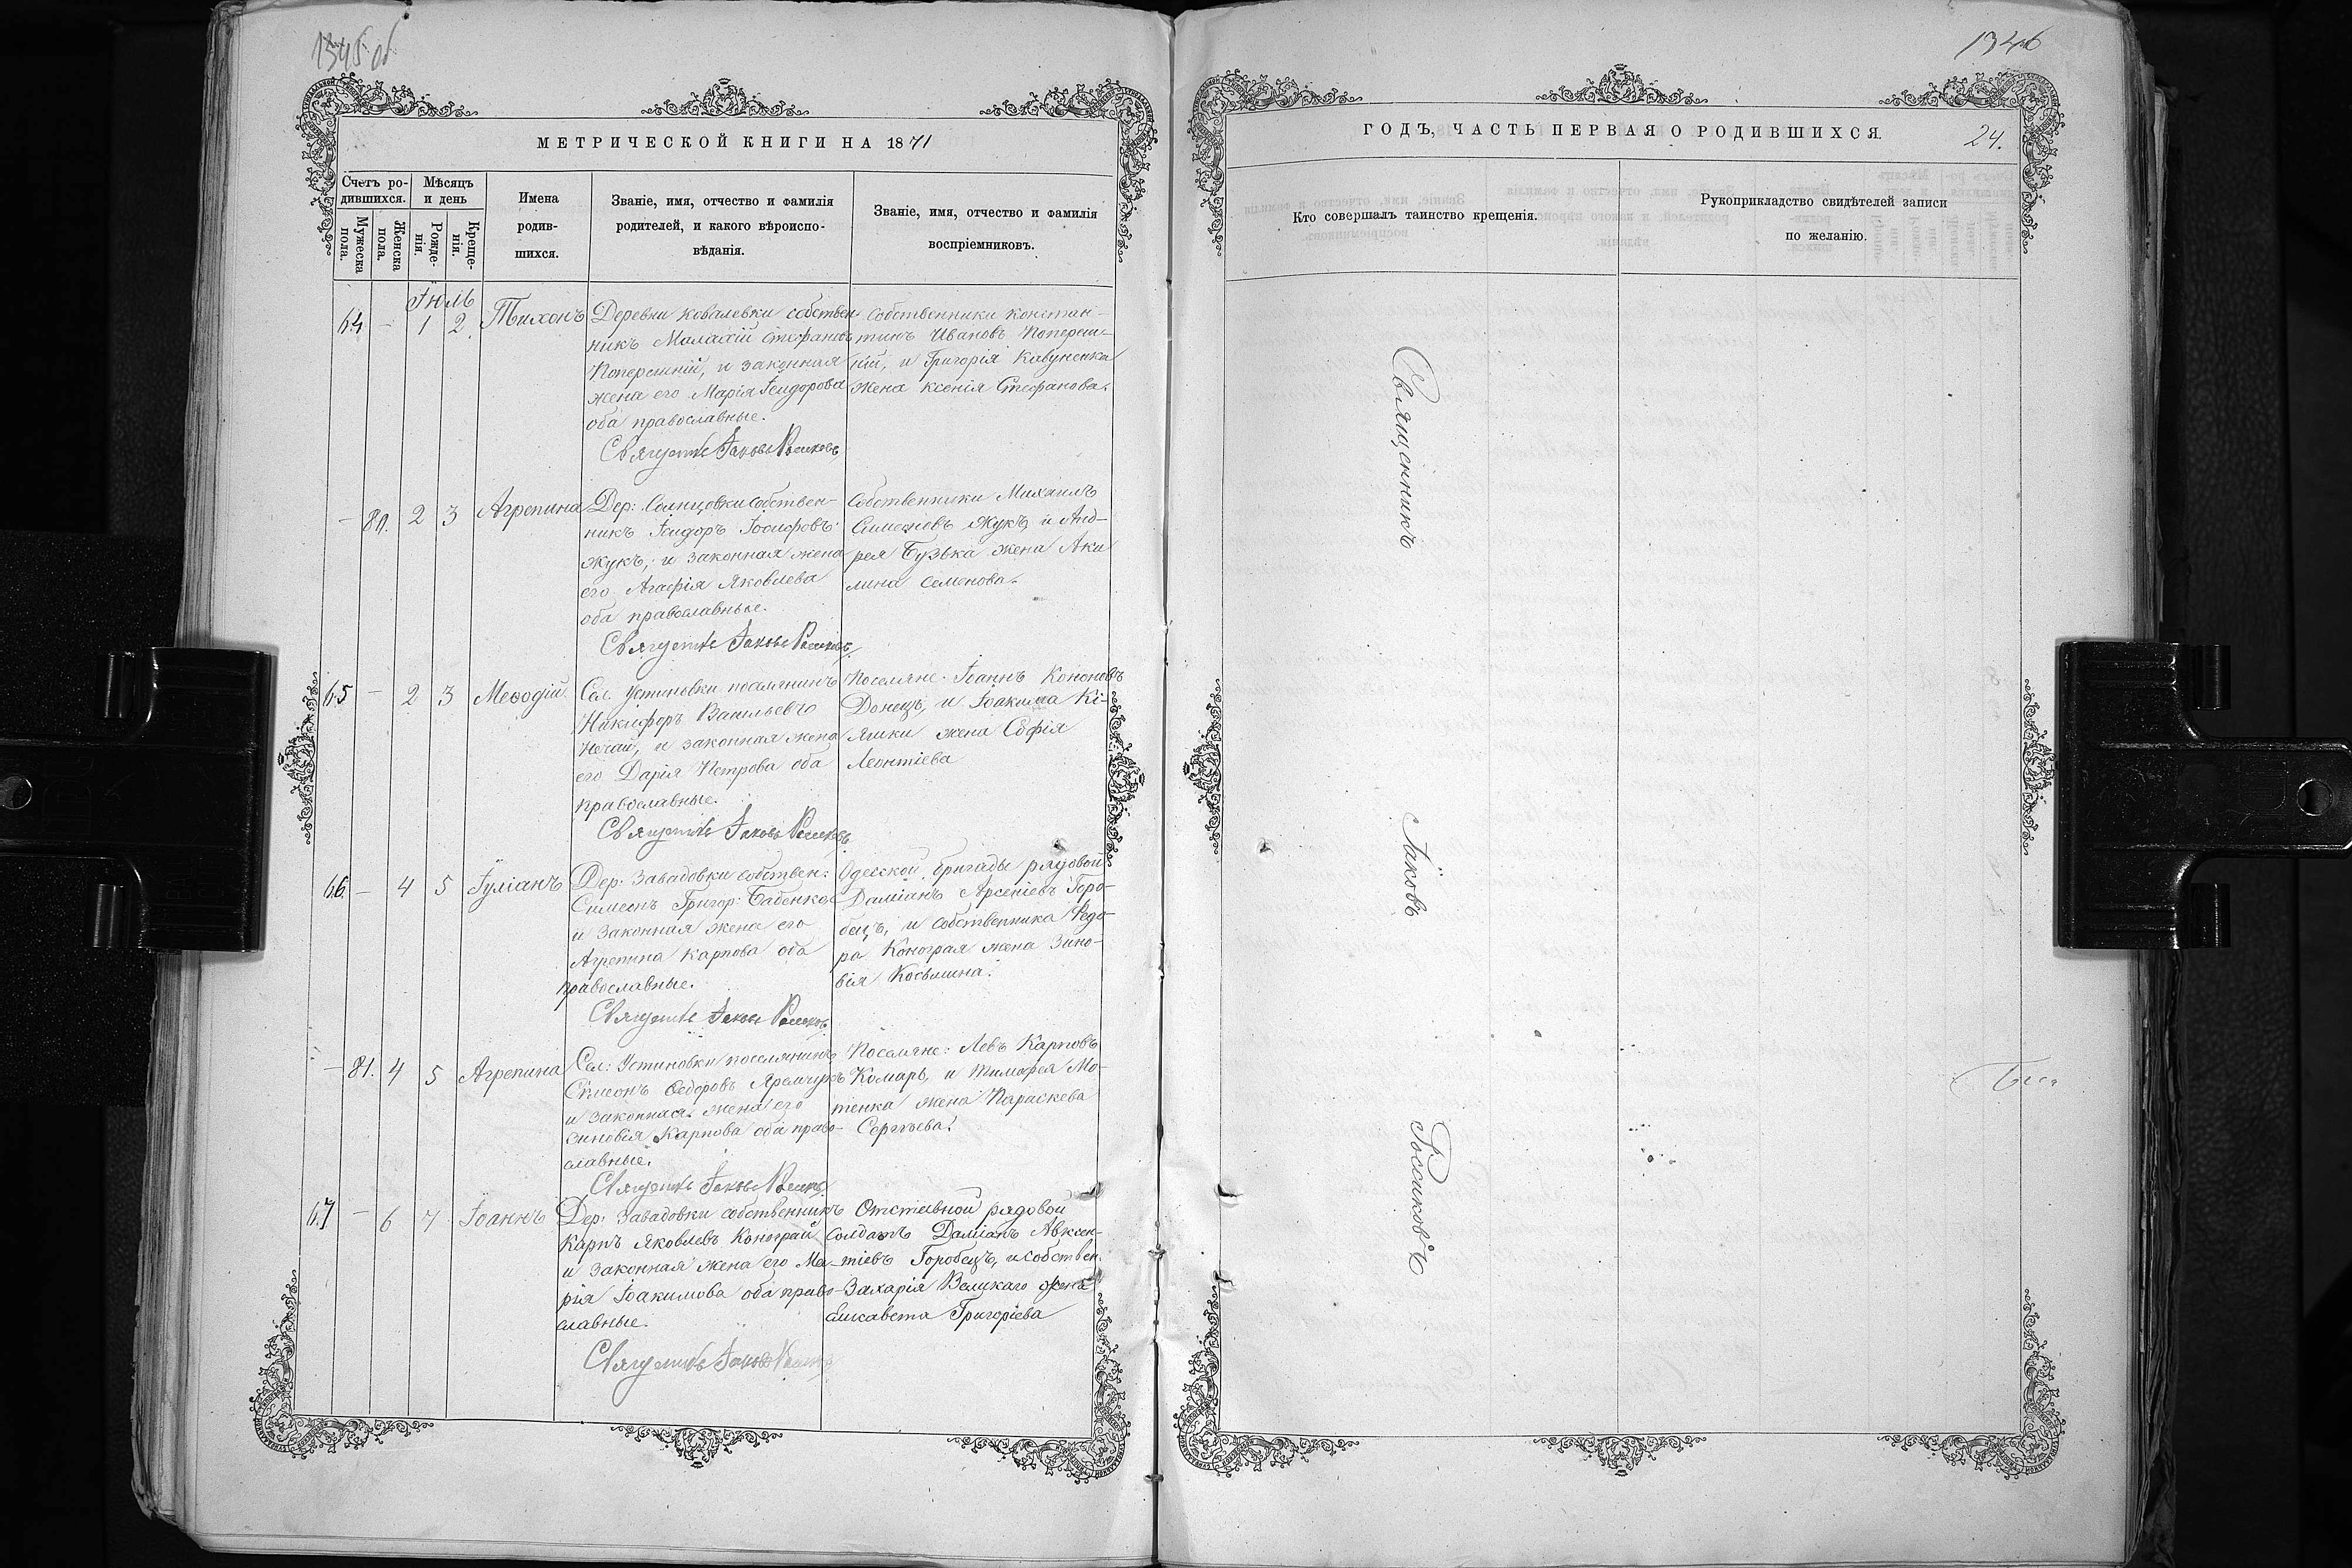 1345 об
МЕТРИЧЕСКОЙ КНИГИ НА 1871
Счетъ ро-
дившихся.
Мѣсяцъ
и день
Мужеска
пола.
Женска
пола.
Рожде-
нія.
Креще-
нія.
Имена
родив-
шихся.
Званіе, имя, отчество и фамилія
родителей, и какого вѣроиспо-
вѣданія.
Званіе, имя, отчество и фамилія
воспріемниковъ.
Іюль
64. - 1 2. Тихонъ
Деревни Ковалевки собствен-
никъ Малахій Стефановъ
Поперешній, и законная
жена его Марія Ісидорова
оба православные.
Собственники Констан-
тинъ Ивановъ Попереш-
ній, и Григорія Кавуненка
жена Ксенія Стефанова.
Священникъ Іаковъ
- 80. 2 3 Агрепина
Дер: Солнцовки собствен-
никъ Ісидоръ Іосифовъ
Жукъ, и законная жена
его Агафія Яковлева
оба православные.
Собственники Михаилъ
Симеоновъ Жукъ и Анд-
рея Бузька жена Аки
лина Семенова.
Священникъ Іаковъ
65 - 2 3 Меѳодій
Сел. Устиновки поселянинъ
Никифоръ Васильевъ
Нечай, и законная жена
его Дарія Петрова оба
православные.
Поселяне: Іоаннъ Кононовъ
Донецъ, и Іоакима Кі-
яшки жена Софія
Леонтіева
Священникъ Іаковъ
66. - 4 5 Іуліанъ
Дер: Завадовки собствен:
Симеонъ Григор: Бабенко
и законная жена его
Агрепина Карпова оба
православные.
Одесской бригады рядовой
Даміанъ Арсеніевъ Горо-
бецъ, и собственника Ѳедо-
ра Конограя жена Зино-
вія Косьмина.
Священникъ Іаковъ
- 81. 4 5 Агрепина
Сел: Устиновки поселянинъ
Симеонъ Ѳедоровъ Яремчукъ
и законная жена его
Зиновія Карпова оба право-
славные.
Поселяне: Левъ Карповъ
Комаръ, и Тимофея Мо-
тенка жена Параскева
Сергѣева.
Священникъ Іаковъ
67 - 6 7 Іоаннъ
Дер: Завадовки собственникъ
Карпъ Яковлевъ Конограй
и законная жена его Ма-
рія Іоакимова оба право-
славные.
Отставной рядовой
солдатъ Даміанъ Авксен-
тіевъ Горобецъ, и собствен.
Захарія Велицкаго жена
Елисавета Григоріева
Священникъ Іаковъ
1346
ГОДЪ, ЧАСТЬ ПЕРВАЯ О РОДИВШИХСЯ.
24.
Кто совершалъ таинство крещенія.
Рукоприкладство свидѣтелей записи
по желанію.
Священникъ
Іаковъ
Россиковъ